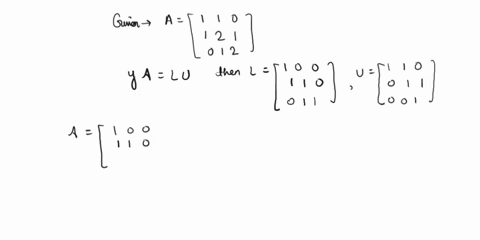 Given → A = [ 1 1 0
1 2 1
0 1 2 ]
y A = LU then L = [ 1 0 0
1 1 0
0 1 1 ] , U = [ 1 1 0
0 1 1
0 0 1 ]
A = [ 1 0 0
1 1 0